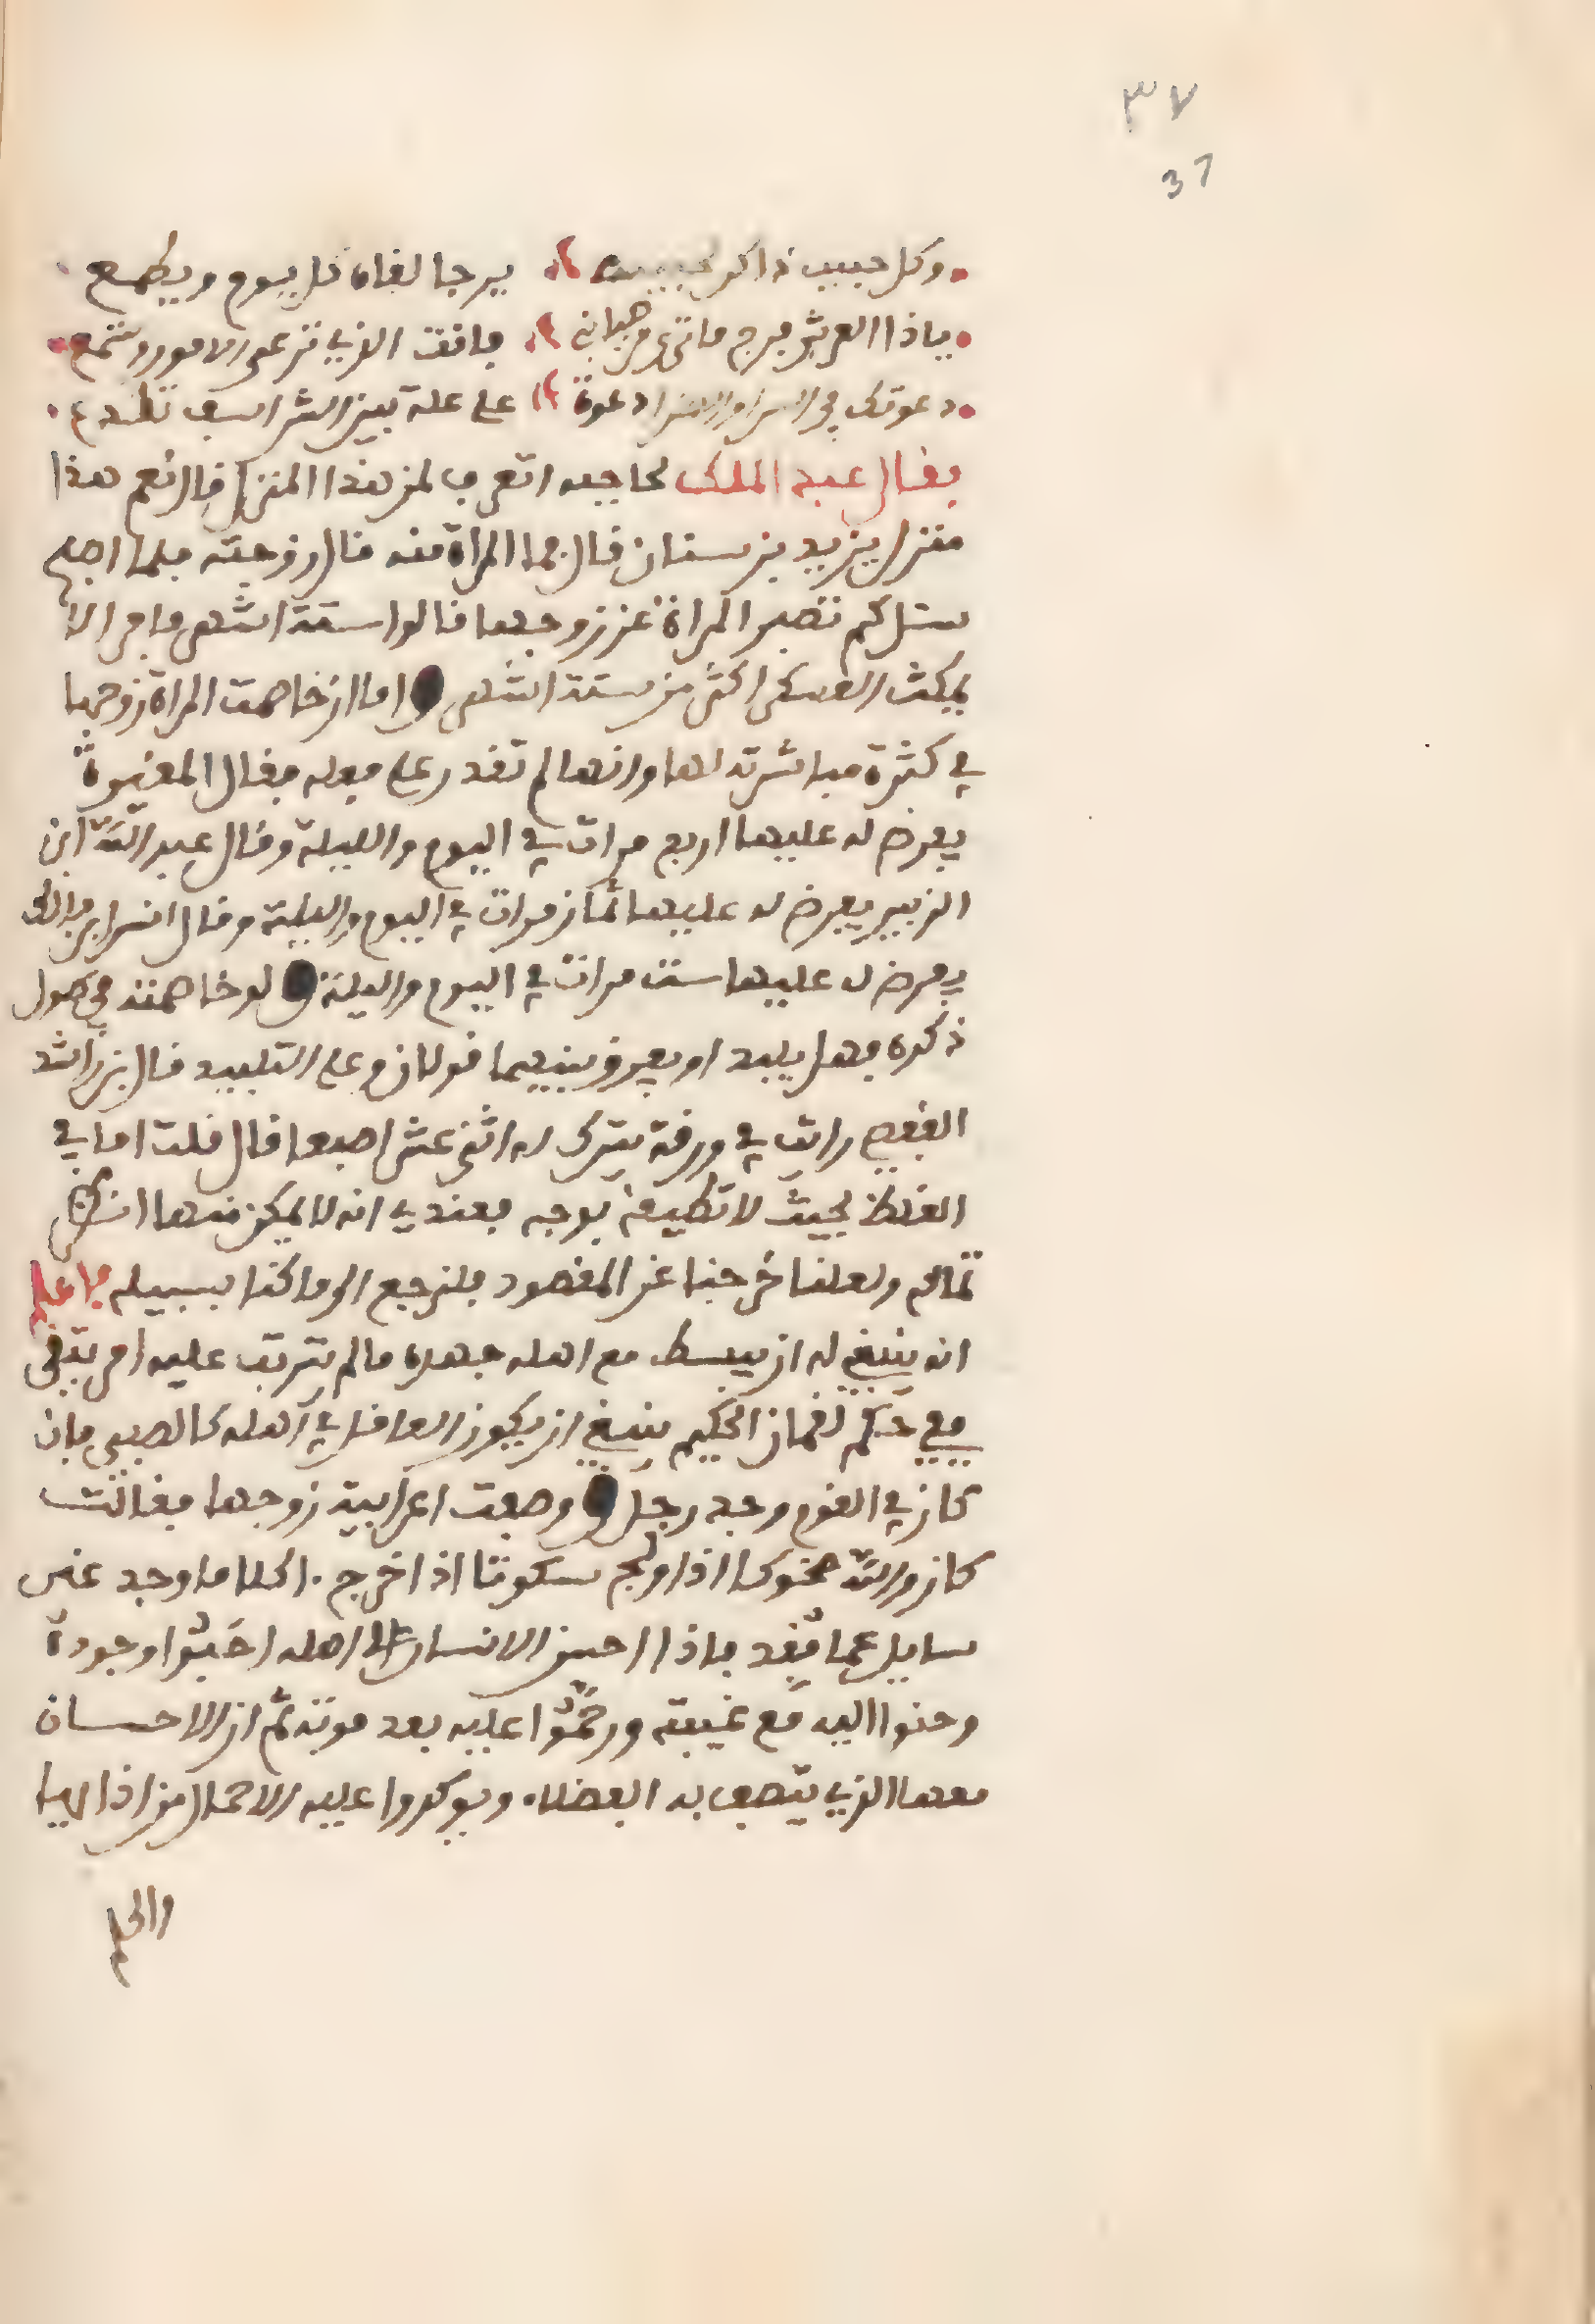 ٣٧
37
وكل حبيب ذاكر لحبيبه يرجا لقاه كل يوم ويطمع
ياذا العرش فرج ما ترى من صبابتي فانت الذي ترعى الامور وتسمع
دعوتك في السراء والضراء دعوة على علة بين الشراسف تلذع
فقال عبد الملك لحاجبه اتعرف لمن هذا المنزل قال نعم هذا
منزل يزيد بن سنان قال فما المراة منه قال زوجته فلما اصبح
سئل كم تصبر المراة عن زوجها قالوا ستة اشهر فامر الا
يمكث العسكر اكثر من ستة اشهر واما ان خاصمت المراة زوجها
في كثرة مباشرته لها وانها لم تقدر على فعله فقال المغيرة
يفرض له عليها اربع مرات في اليوم والليلة وقال عبد الله ابن
الزبير يفرض له عليها ثمان مرات في اليوم والليلة وقال انس ابن مالك
يفرض له عليها ست مرات في اليوم والليلة ولو خاصمته في طول
ذكره فهل يلبد او يفرق بينهما قولان وعلى التلبيد قال بن راشد
القفصي رايت في ورقة يترك له اثنى عشر اصبعا قال قلت اما في
الغلظ بحيث لا تطيقه بوجه فعندي انه لا يمكن منها انظر
تمامه ولعلنا خرجنا عن المقصود فلنرجع الى ما كنا بسبيله فاعلم
انه ينبغي له ان يبسط مع اهله جهده ما لم يترتب عليه امر يتقى
ففي حكم لقمان الحكيم ينبغي ان يكون العاقل في اهله كالصبي فان
كان في القوم وجد رجل ووصفت اعرابية زوجها فقالت
كان والله ضحوكا اذا ولج سكوتا اذا خرج اكلا ما وجد غير
سايل عما فقد فاذا احسن الانسان الى اهله احبوا وجوده
وحنوا اليه مع غيبته ورحموا عليه بعد موته ثم ان الاحسان
معها الذي يتصف به الفضلاء ويوكدوا عليه الاحمال من اذايها
والحلم